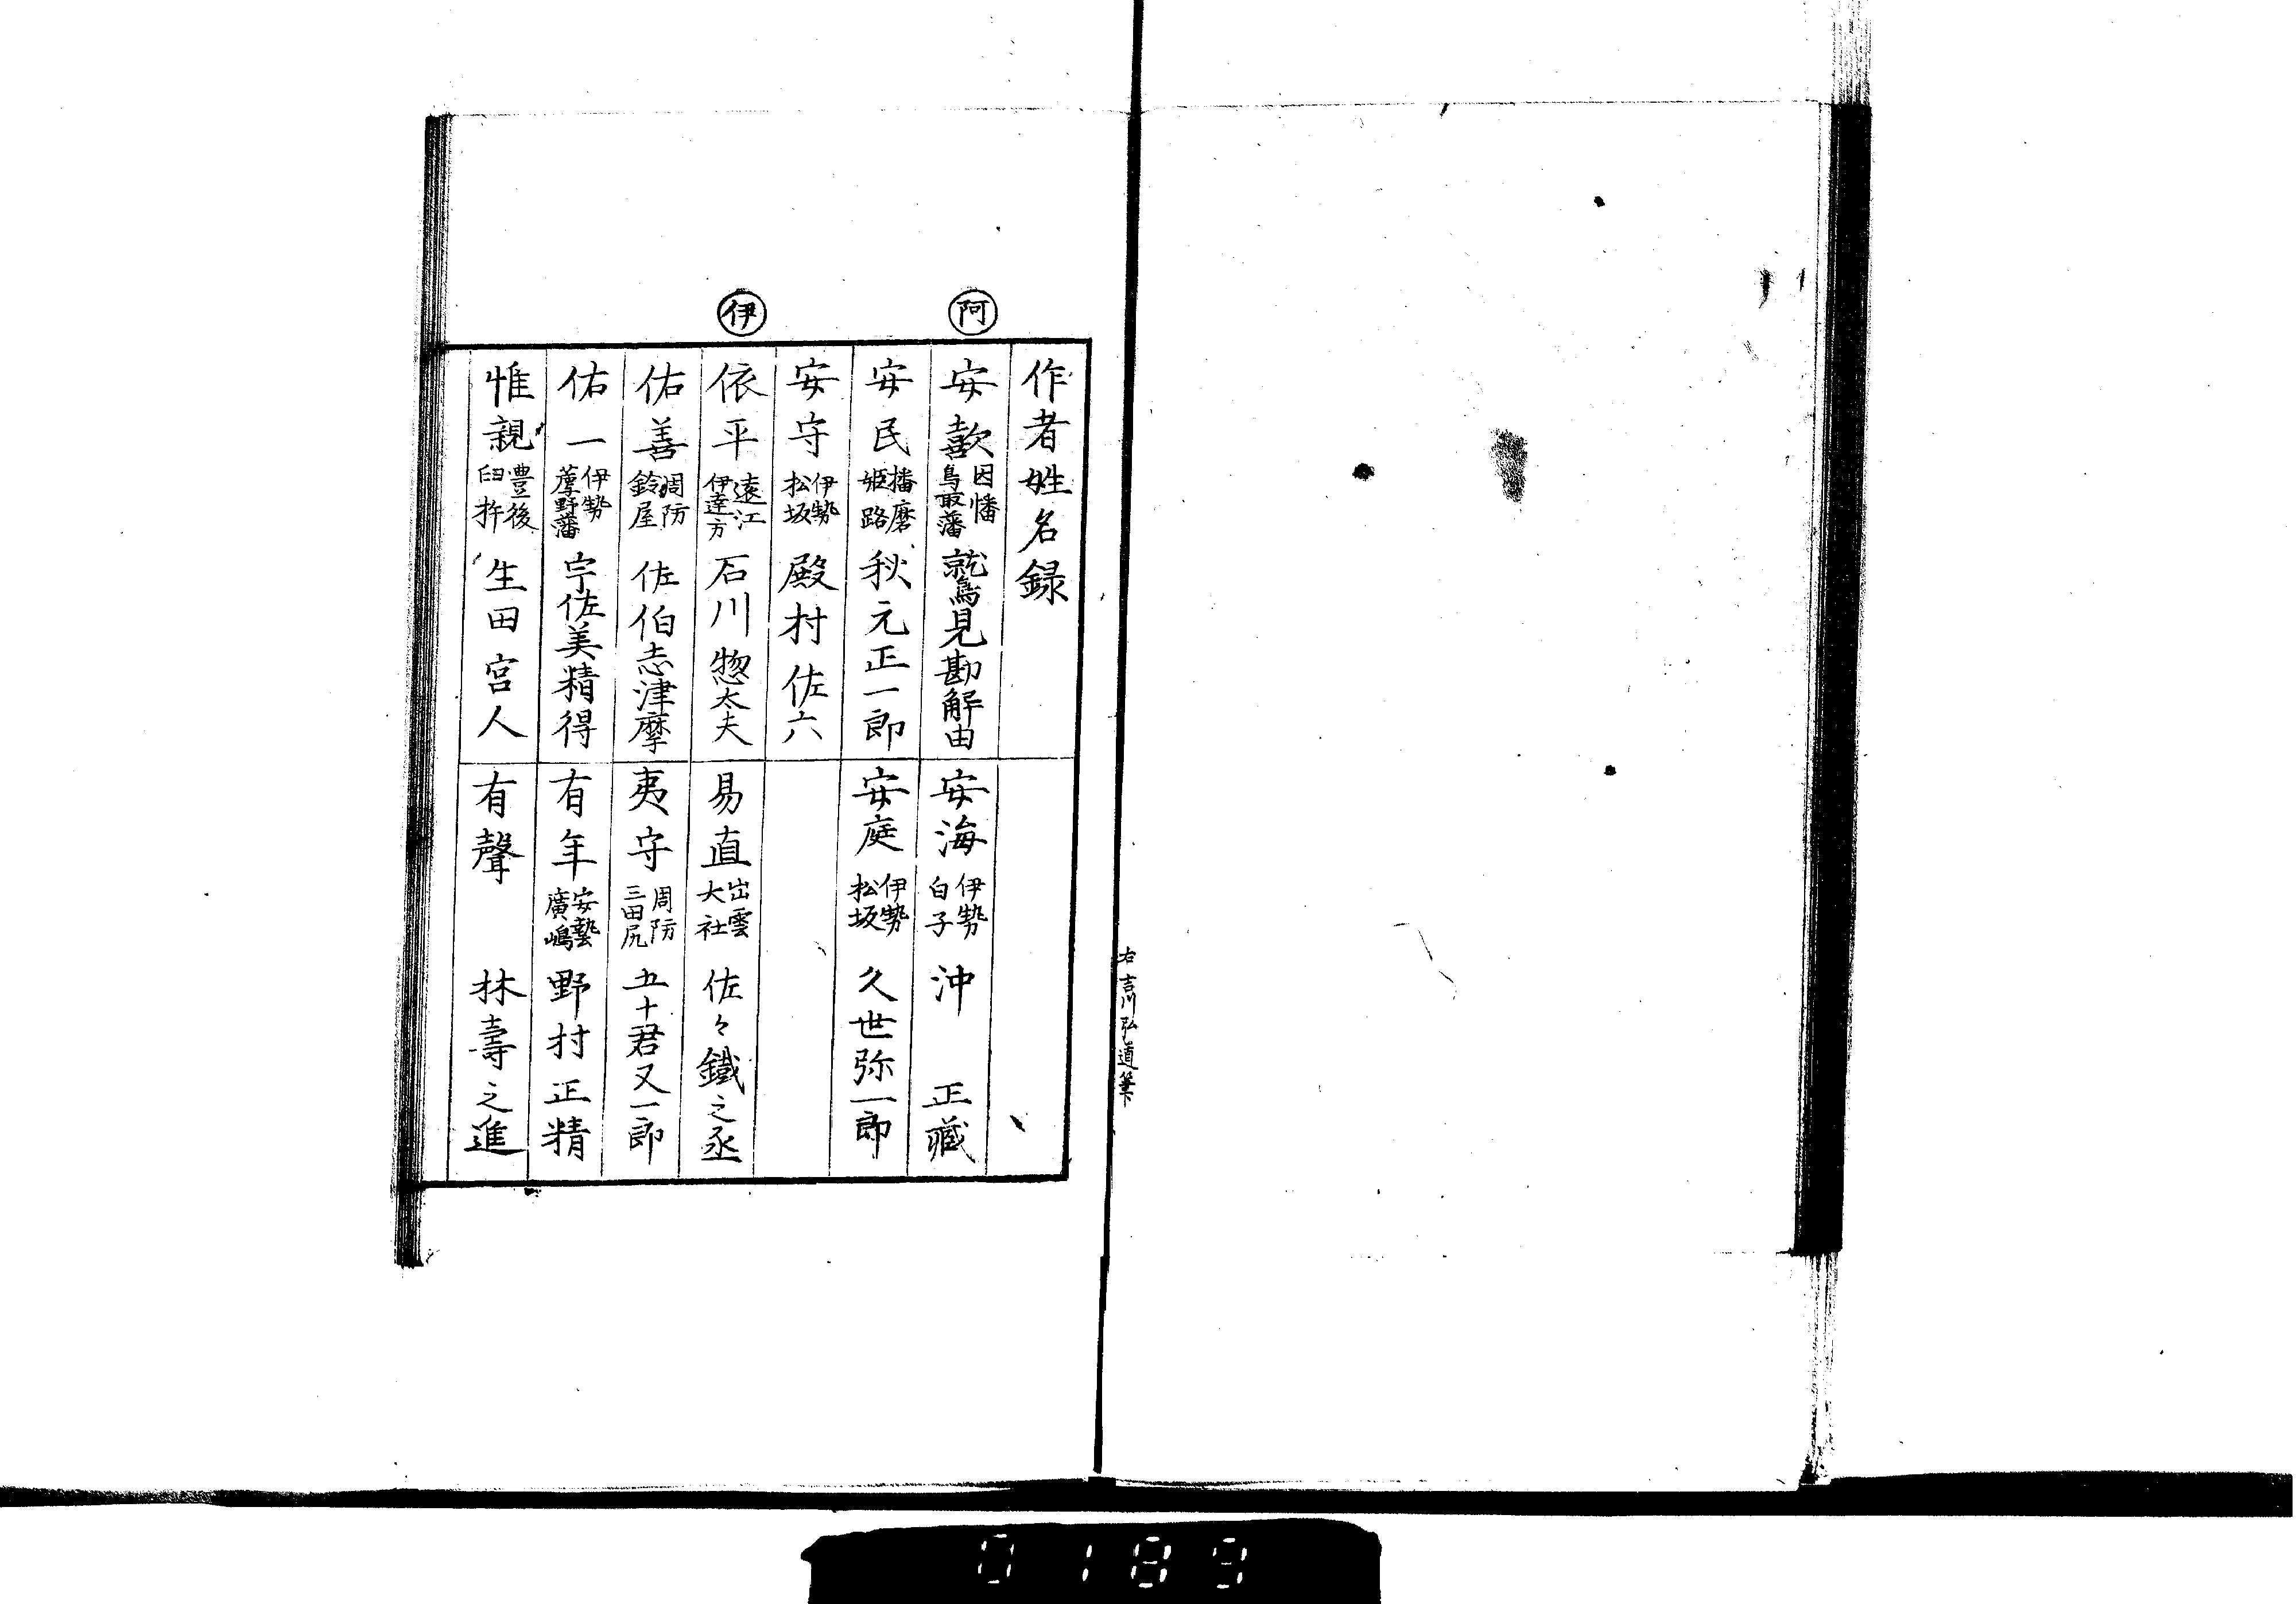 右吉川弘道筆下
作者姓名録
阿
安歖 因幡鳥取藩 鷲見勘解由
安海 伊勢白子 沖正蔵
安民 播磨姫路 秋元正一郎
安庭 伊勢松坂 久世弥一郎
安守 伊勢松坂 殿村佐六
伊
依平 遠江伊達方 石川惣太夫
易直 出雲大社 佐々鐵之丞
佑善 周防鈴屋 佐伯志津摩
夷守 周防三田尻 五十君又一郎
佑一 伊勢薦野藩 宇佐美精得
有年 安藝廣嶋 野村正精
惟親 豊後臼杵 生田宮人
有聲 林壽之進
0189